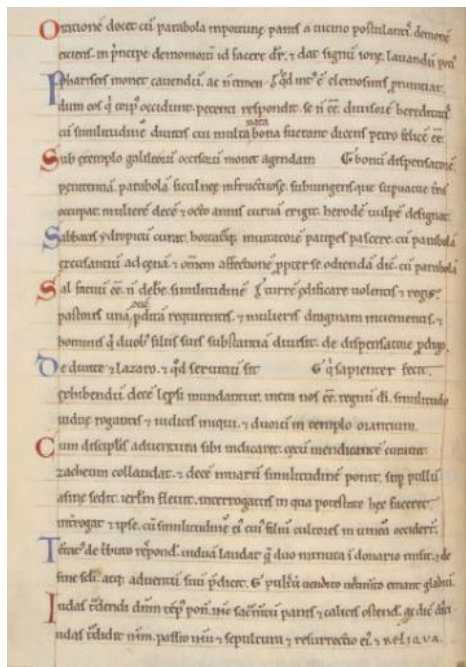 Oratione docet cū parabola inportune panis a uicino postulanti. demone
eiciens. in principe demoniorū id facere dr̄. ⁊ dat signū ione. lauandū poti'
Pharisei monet cauendū. ac nimen
dum eos q̄ corp' occidunt. petenti respondit se n̄ eē. diuisorē hereditatū
cū similitudinē diuitis cui multa bona fuerant dicens petro
Sub exemplo galileorū occisorū monet agendam dispensatorē
penitentiā. parabolā ficulneę infructuosę. subiungens que supuacue trā
occupat. mulierē decē ⁊ octo annis curuā erigit. herodē uulpē designat.
Sabbatis ydropicū curat. hortatq; inuitatorē paupes pascere. cū parabola
excusantiū ad cenā. ⁊ omēm affectionē ppter se odiendā dic̄. cū parabola
Sal fatuū eē. n̄ debe. similitudinē turrē ędificare uolentis ⁊ regis.
pastoris una oue pdita requirentis. ⁊ mulieris dragmam inuenientis. ⁊
hominis q̄ duob' filiis suis substantiā diuisit. de dispensatore pdigo.
De diuite ⁊ lazaro. ⁊ qd̄ seruitū sit sapienter fecit.
cohibendū. decē lepsi mundantur. intra nos eē. regnū dī. similitudo
uiduę rogantis ⁊ iudicis iniqui. ⁊ duorū in templo orantium
Cum disciplis aduentura sibi indicaret. cecū mendicantē curauit
zacheum collaudat. ⁊ decē mnarū similitudinē ponit. sup pullū
asinę sedit. ierlm̄ fleuit. interrogatus in qua potestate hęc faceret
introgat ⁊ ipse. cū similitudinē ei' cui' filiū cultores in uinea occiderē.
Tētat' de t̄buto respond̄. uidua laudat q̄ duo minuta ī donario misit. ⁊ de
fine sc̄li. atq; aduentū suū p̄dicit. uendito uestimto emant gladiū
Iudas t̄dendi dn̄m tēp' panis ⁊ calicis ostend̄.
iudas t̄didit passio ⁊ sepultura ⁊ resurrectio ei'. ⁊ reliqua.